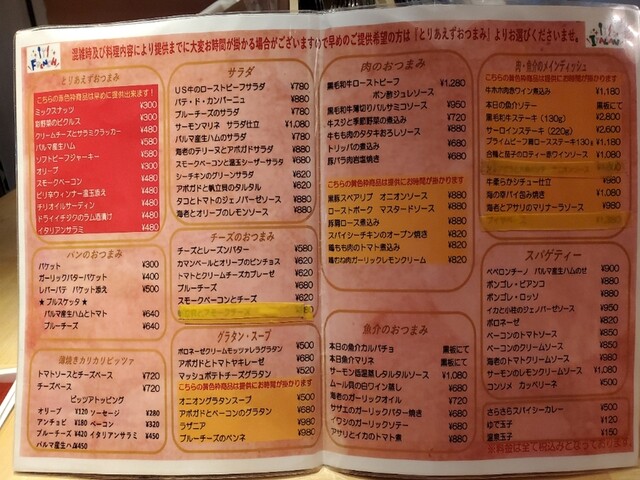 混雑時及び料理内容により提供までに大変お時間が掛かる場合がございますので早めのご提供希望の方は『とりあえずおつまみ』よりお選びくださいませ。
とりあえずおつまみ
こちらの赤色枠商品は早めに提供出来ます!
ミックスナッツ ¥300
彩野菜のピクルス ¥300
クリームチーズとサラミクラッカー ¥480
パルマ産生ハム ¥580
ソフトビーフジャーキー ¥580
オリーブ ¥300
スモークベーコン ¥480
ピリ辛ウィンナー温玉添え ¥480
チリオイルサーディン ¥480
ドライイチジクのラム酒漬け ¥480
イタリアンサラミ ¥480
パンのおつまみ
バケット ¥300
ガーリックバターバケット ¥400
レバーパテ バケット添え ¥500
★ブルスケッタ★
パルマ産生ハムとトマト ¥640
ブルーチーズ ¥640
薄焼きカリカリピッツァ
トマトソースとチーズベース ¥720
チーズベース ¥720
ピッツアトッピング
オリーブ ¥120 ソーセージ ¥280
アンチョビ ¥180 ベーコン ¥320
ブルーチーズ ¥420 イタリアンサラミ ¥450
パルマ産生ハム ¥450
サラダ
US牛のローストビーフサラダ ¥780
パテ・ド・カンパーニュ ¥880
ブルーチーズのサラダ ¥780
サーモンマリネ サラダ仕立 ¥1,080
パルマ産生ハムのサラダ ¥780
海老のテリーヌとアボガドサラダ ¥880
スモークベーコンと温玉シーザーサラダ ¥680
シーチキンのグリーンサラダ ¥620
アボガドと帆立貝のタルタル ¥620
タコとトマトのジェノバーゼソース ¥880
海老とオリーブのレモンソース ¥880
チーズのおつまみ
チーズとレーズンバター ¥580
カマンベールとオリーブのピンチョス ¥620
トマトとクリームチーズカプレーゼ ¥620
ブルーチーズ ¥680
スモークベーコンとチーズ ¥620
グラタン・スープ
ボロネーゼクリームモッツァレラグラタン ¥500
アボガドとトマトヤキレーゼ ¥680
マッシュポテトチーズグラタン ¥520
こちらの黄色枠商品は提供にお時間が掛かります
オニオングラタンスープ ¥500
アボガドとベーコンのグラタン ¥680
ラザニア ¥980
ブルーチーズのペンネ ¥980
肉のおつまみ
黒毛和牛ローストビーフ ¥1,280
ポン酢ジュレソース
黒毛和牛薄切りバルサミコソース ¥960
牛スジと季節野菜の煮込み ¥720
牛もも肉のタタキおろしソース ¥880
トリッパの煮込み ¥680
豚バラ肉岩塩焼き ¥680
こちらの黄色枠商品は提供にお時間が掛かります
黒豚スペアリブ オニオンソース ¥880
ローストポーク マスタードソース ¥880
豚肩ロース煮込み ¥880
スパイシーチキンのオーブン焼き ¥820
鶏もも肉のトマト煮込み ¥820
鶏むね肉ガーリックレモンクリーム ¥820
魚介のおつまみ
本日の魚介カルパチョ 黒板にて
本日魚介マリネ 黒板にて
サーモン低温蒸しタルタルソース ¥1,080
ムール貝の白ワイン蒸し ¥680
海老のガーリックオイル ¥720
サザエのガーリックバター焼き ¥680
イワシのガリソテー ¥680
アサリとイカのトマト煮 ¥880
肉・魚介のメインディッシュ
こちらの黄色枠商品は提供にお時間が掛かります
牛ホホ肉赤ワイン煮込み ¥1,180
本日の魚介ソテー 黒板にて
黒毛和牛ステーキ(130g) ¥2,800
サーロインステーキ(220g) ¥2,600
プライムビーフ肩ロースステーキ130g ¥1,180
合鴨と茄子のロティー赤ワインソース ¥1,080
牛柔らかシチュー仕立 ¥980
海の幸パイ包み焼き ¥1,080
海老とアサリのマリナーラソース ¥980
スパゲティー
ペペロンチーノ パルマ産生ハムのせ ¥900
ボンゴレ・ビアンコ ¥880
ボンゴレ・ロッソ ¥880
イカと小柱のジェノバーゼソース ¥950
ボロネーゼ ¥820
ベーコンのトマトソース ¥850
ベーコンのクリームソース ¥850
海老のトマトクリームソース ¥980
サーモンのレモンクリームソース ¥1,080
コンソメ カッペリーネ ¥500
さらさらスパイシーカレー ¥500
ゆで玉子 ¥120
温泉玉子 ¥150
※料金は全て税込みとなっております